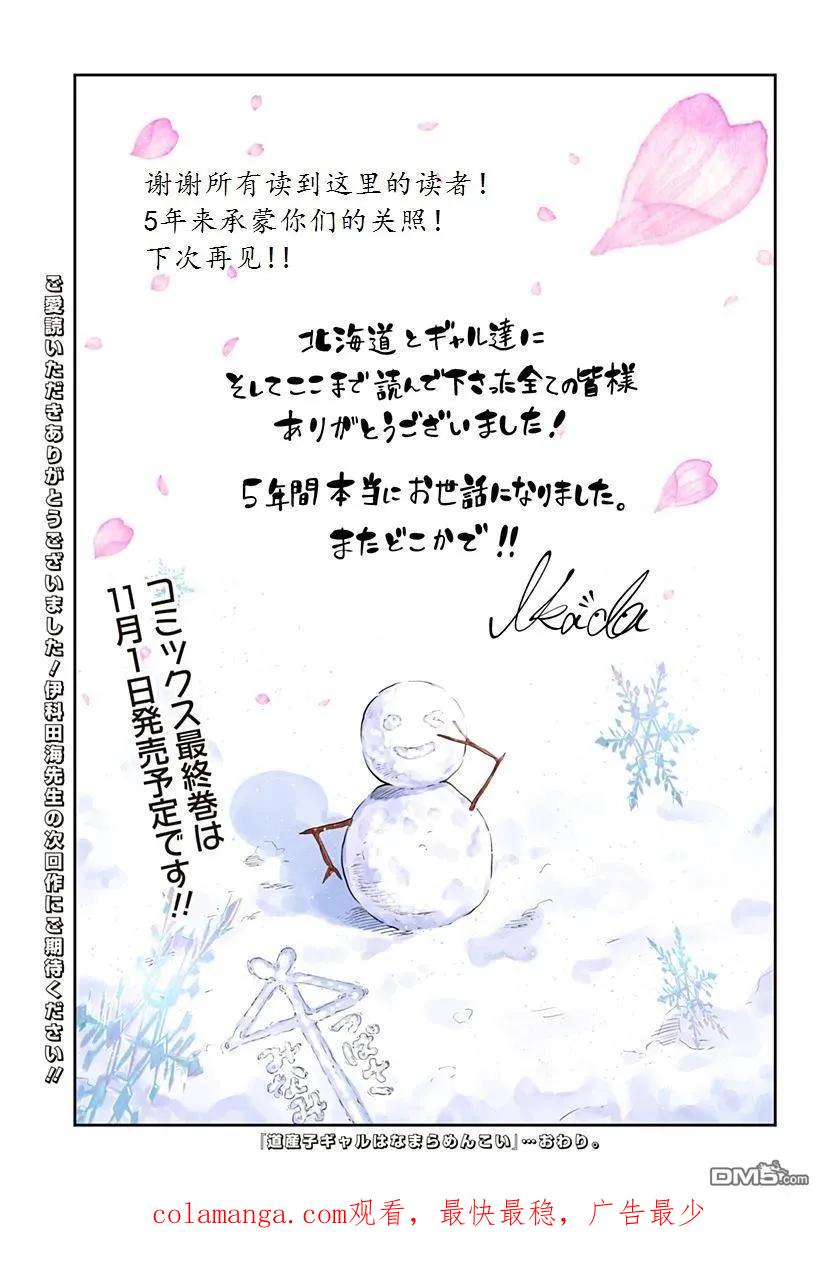 谢谢所有读到这里的读者!
5年来承蒙你们的关照!
下次再见!!
北海道とギャル達に
そしてここまで読んで下さった全ての皆様
ありがとうございました!
5年間本当にお世話になりました。
またどこかで!!
Ikada
コミックス最終巻は
11月1日発売予定です!!
ご愛読いただきありがとうございました!伊科田海先生の次回作にご期待ください!!
つばさ
みなみ
『道産子ギャルはなまらめんこい』…おわり。
DM5.com
colamanga.com观看，最快最稳，广告最少